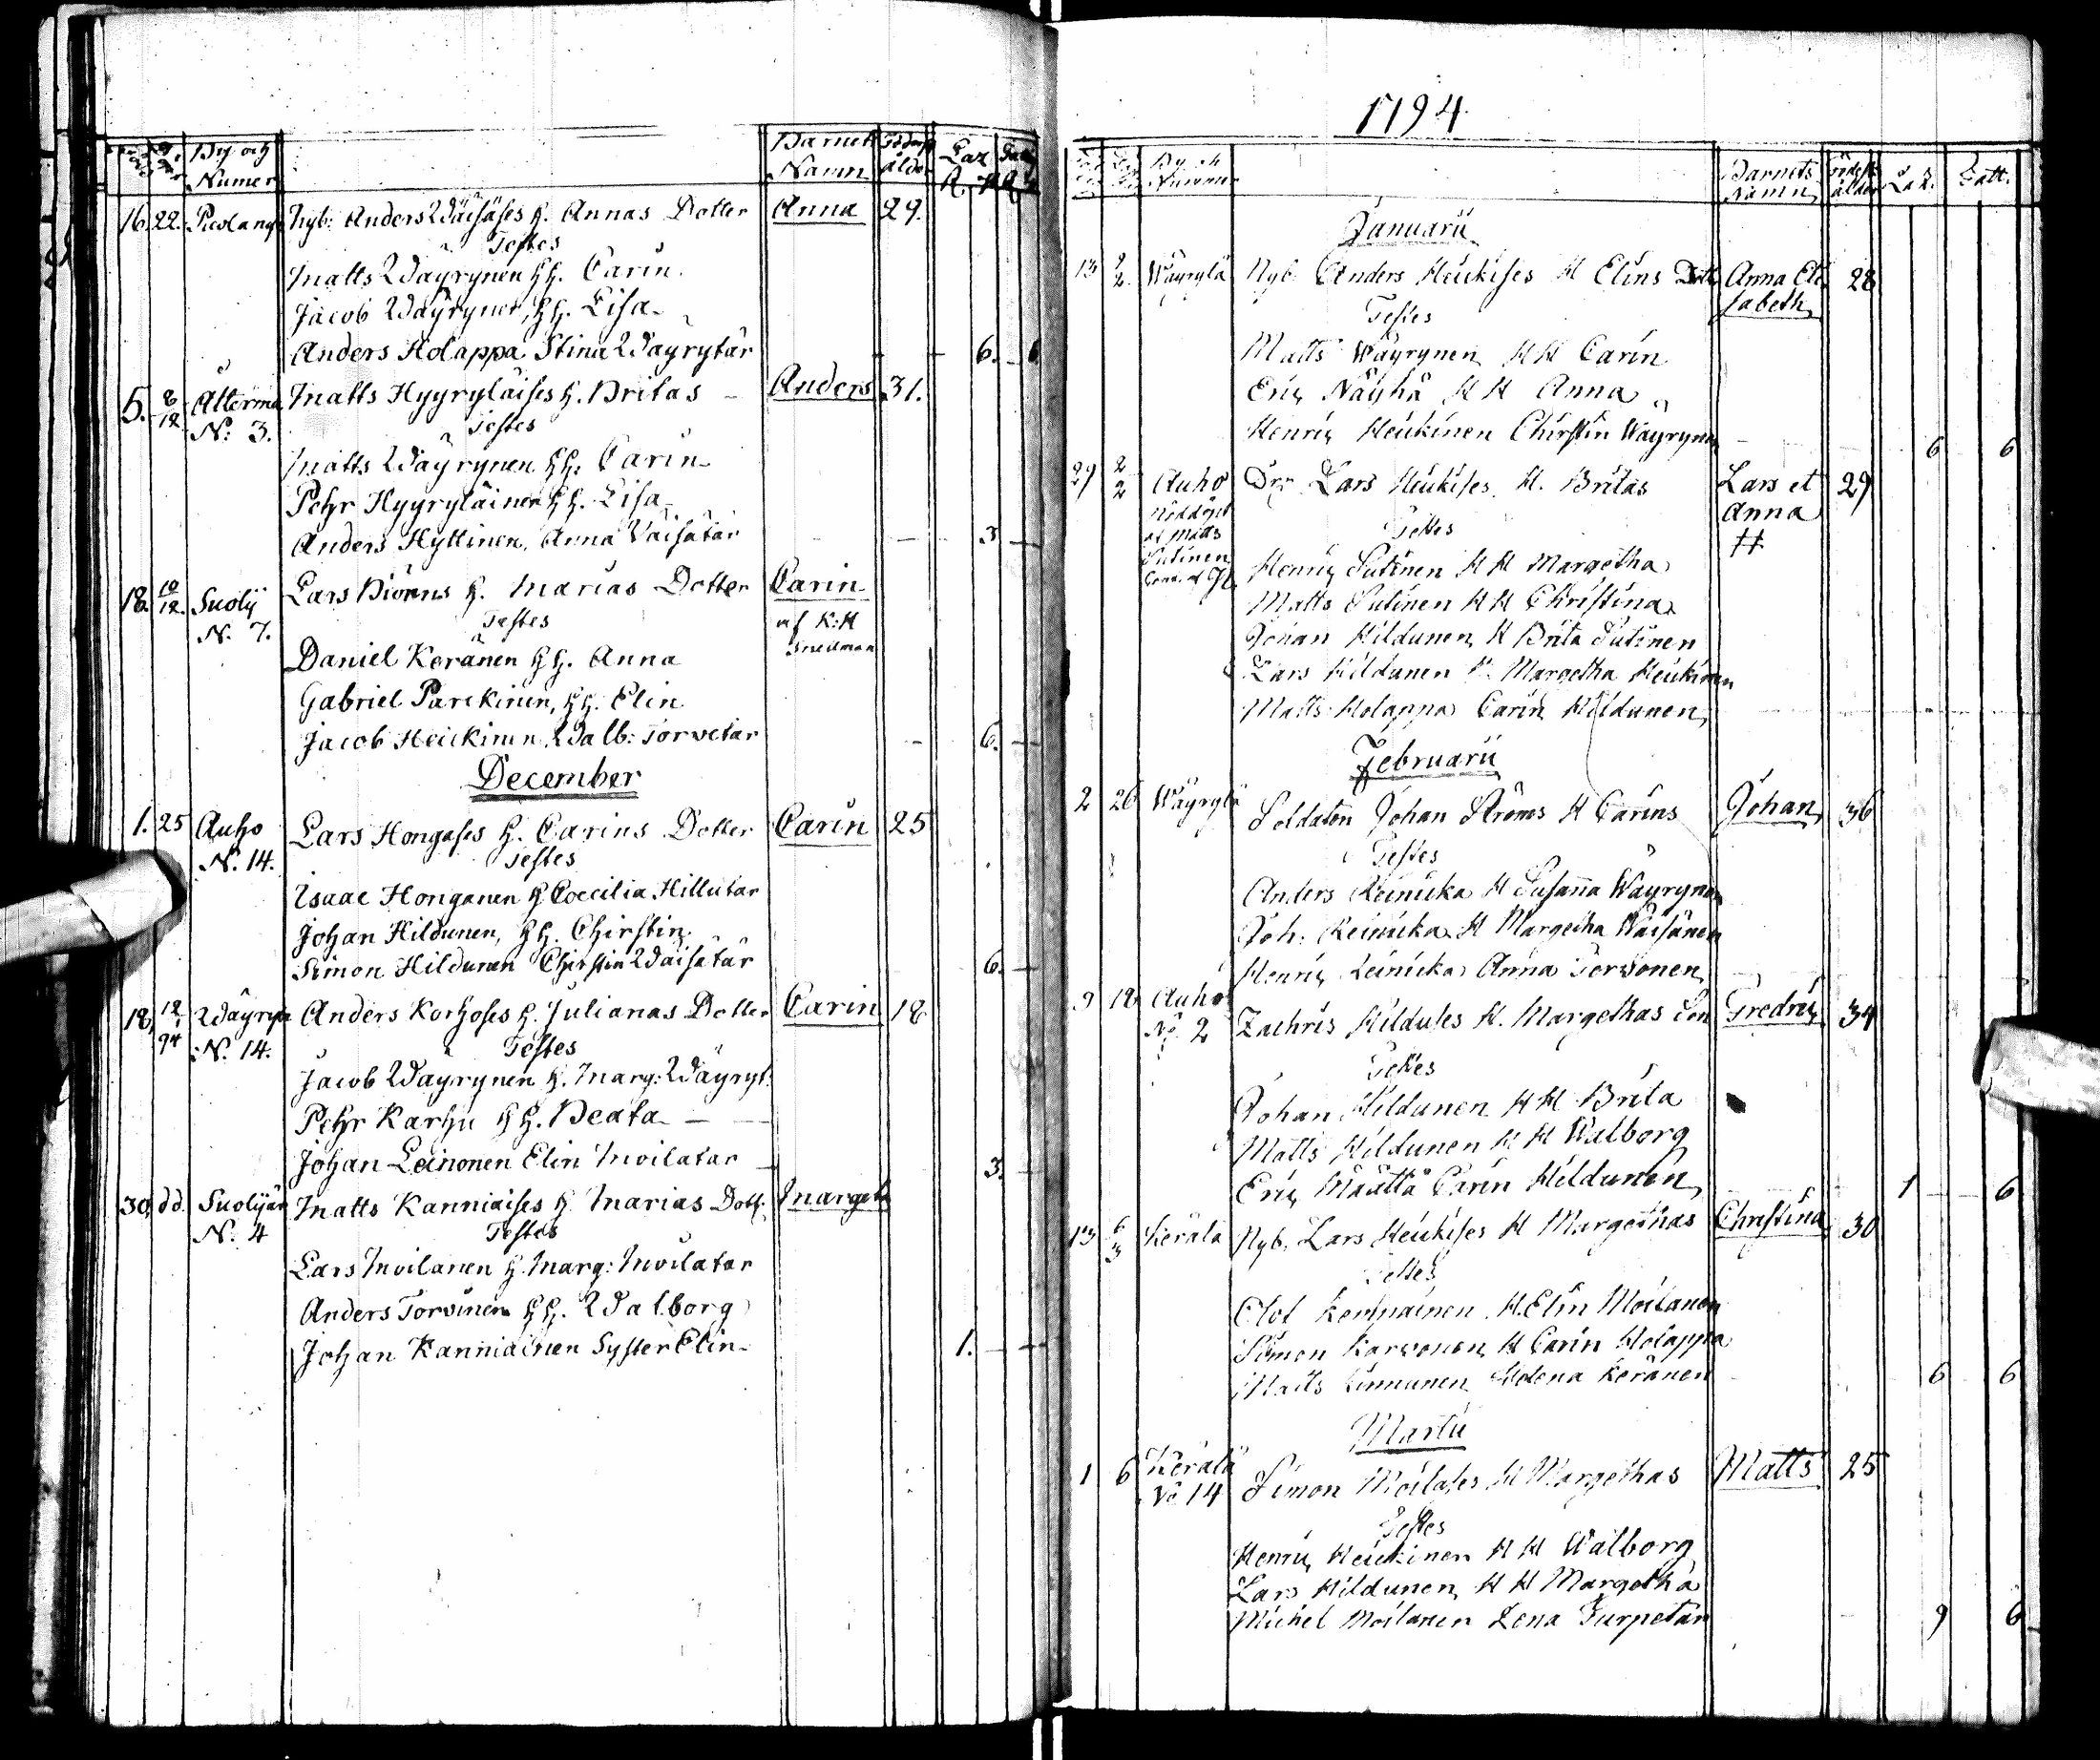 By och Numer Barnets Namn Föders ålder Laz. Fatt.
16. 22. Nyb: Anders Wäisäses H. Annas Dotter Anna 29.
Testes
Matts Wäyrynen HH. Carin.
Jacob Wäyrynen, HH. Lisa
Anders Holappa Stina Wäyrytär 6.
5. 8/12 Alterma N: 3. Matts Hyyryläises H. Britas Anders 31.
Testes
Matts Wäyrynen HH. Carin
Pehr Hyyryläinen HH. Lisa
Anders Hyttinen, Anna Väisätär 3
18. 10/12. Suolij N. 7. Lars Biörns H. Marias Dotter Carin
Testes af K:H
Daniel Keränen HH. Anna
Gabriel Parckinen, HH. Elin
Jacob Heickinen, Walb: Torvetar 6.
December
1. 25 Auho N. 14. Lars Hongases H. Carins Dotter Carin 25
Testes
Isaac Honganen H Coecilia Hillutar
Johan Hildunen, HH. Chirstin
Simon Hildunen Chirstin Wäisätär 6.
18. 12/1 94 N. 14. Anders Korhoses H. Julianas Dotter Carin 18
Testes
Jacob Wäyrynen H. Marg: Wäyryt:
Pehr Karhu HH. Beata
Johan Leinonen Elin Moilatar 3.
30. dd. Suolijär N. 4 Matts Kanniaises H. Marias Dott: Margeta
Testes
Lars Moilanen H. Marg: Moilatar
Anders Torvinen HH. Walborg
Johan Kanniainen Syster Elin 1.
1794
By och Numer Barnets Namn Föders ålder Laz. Fatt.
Januarii
13 2/2 Wäyrylä Nyb. Anders Heikises H Elins Dott. Anna Eli
Testes sabeth 28
Matts Wäyrynen H H Carin
Eric Näyhä H H Anna
Henric Heikinen Chirstin Wäyrynen 6 6
29 2/2 Auho Dr. Lars Heikises. H. Britas Lars et 29
Nöddöpt Testes Anna
af Matts ++
Sutinen Henric Sutinen H H Margetha
Matts Sutinen H H Christina
Johan Hildunen H Brita Sutinen
Lars Hildunen H. Margetha Heikinen
Matts Holappa Carin Hildunen
Februarii
2 26 Wäyrylä Soldaten Johan Ströms H Carins Johan 36
Testes
Anders Reinicka H Susanna Wäyrynen
Joh: Reinicka H Margetha Wäisänen
Henric Reinicka Anna Torvonen
9 Auho No 2 Zachris Hilduses H. Margethas Son Fredric 34
Testes
Johan Hildunen H H Brita
Matts Hildunen H H Walborg
Eric Määttä Carin Hildunen 1 6
13 6/3 Kerälä Nyb. Lars Heikises H Margethas Christina 30
Testes
Olof Kemppainen H. Elin Moilanen
Simon Karvonen H Carin Holappa
Matts Kinnunen Helena Keränen 6 6
Martii
1 6 Kerälä No 14 Simon Moilases H Margethas Matts 25
Testes
Henric Heickinen H H Walborg
Lars Hildunen H H Margetha
Michel Moilanen Lena Turpetar 9 6